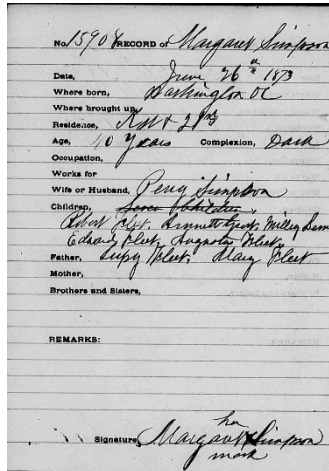 No. 15908 RECORD of Margaret Simpson
Date, June 26th 1873
Where born, Washington DC
Where brought up,
Residence, K St & 21st
Age, 40 Years Complexion, Dark
Occupation,
Works for
Wife or Husband, Simpson
Children, Children
Robert Fleet.
Edward Fleet, Augustus Fleet
Father, Fleet. Mary Fleet
Mother,
Brothers and Sisters,
REMARKS:
her
Signature, Margaret X Simpson
mark